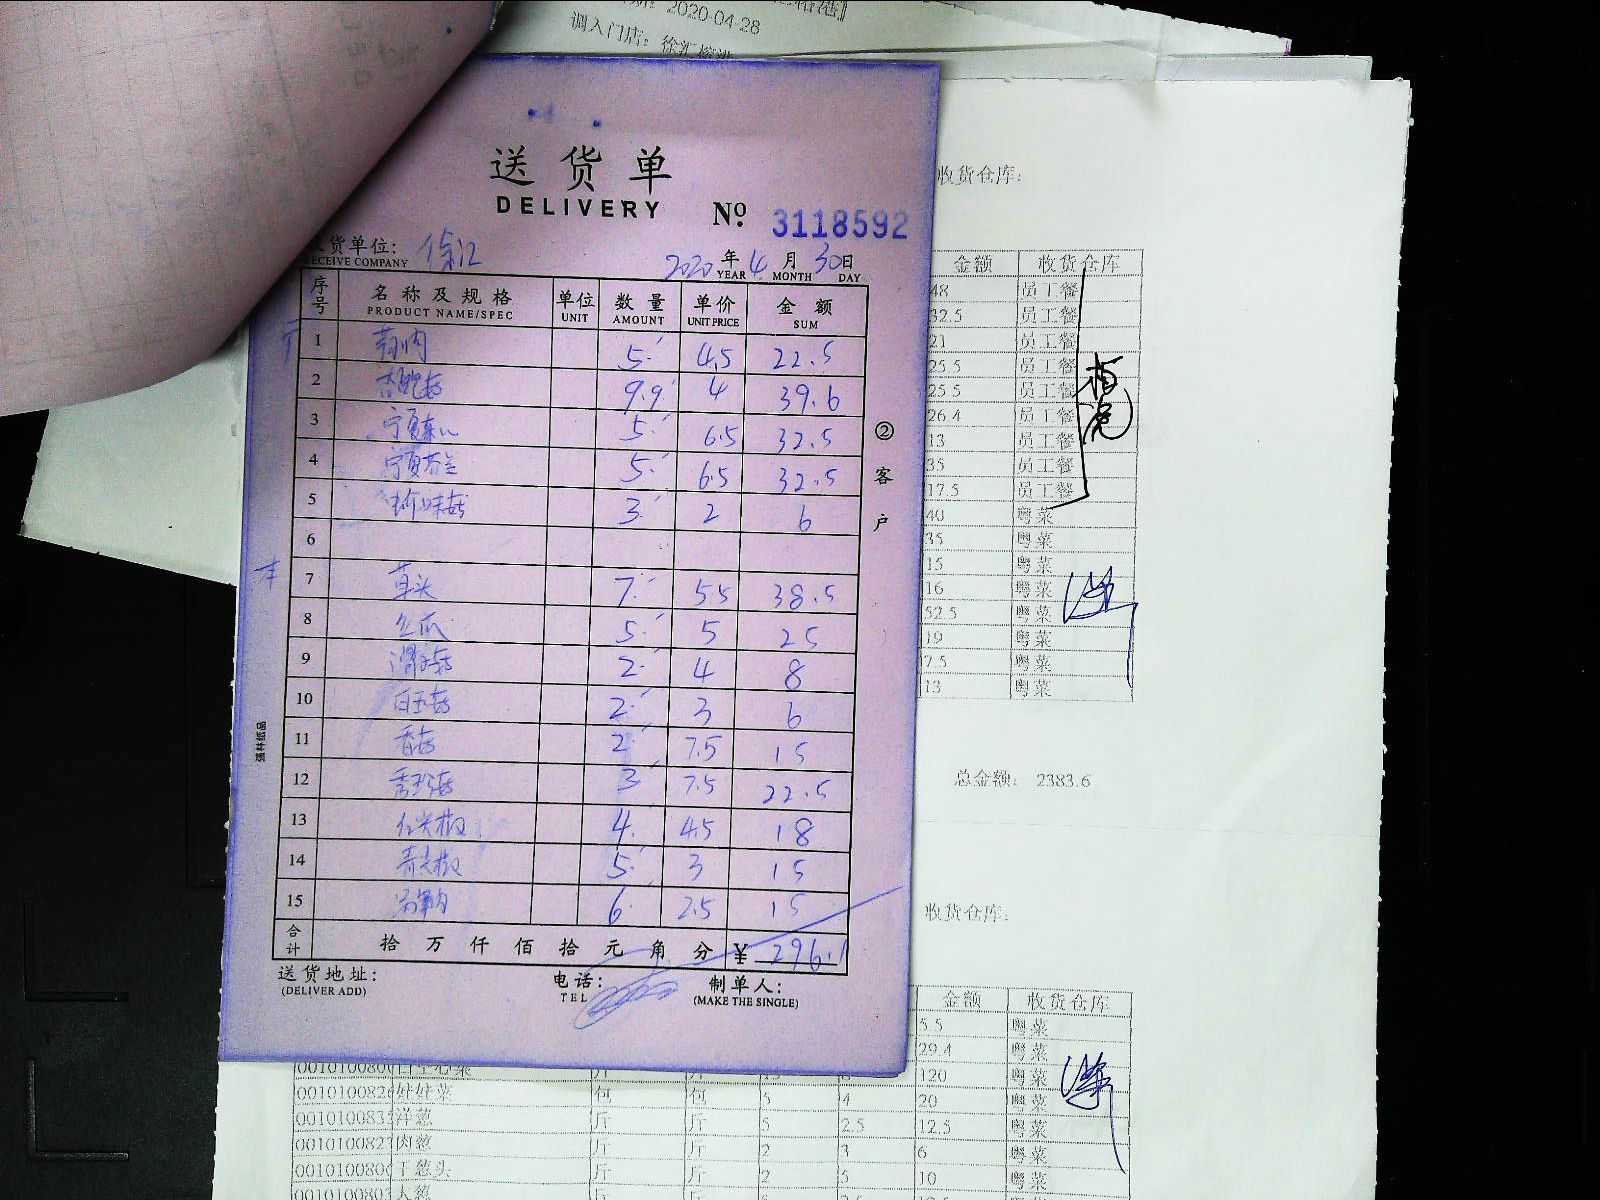 2020-04-28
调入门店：徐汇
收货仓库：
送货单
DELIVERY № 3118592
货单位：徐汇
RECEIVE COMPANY 2020年4月30日
YEAR MONTH DAY
序号 名称及规格 单位 数量 单价 金额
PRODUCT NAME/SPEC UNIT AMOUNT UNIT PRICE SUM
1 5 4.5 22.5
2 杏鲍菇 9.9 4 39.6
3 宁夏菜心 5 6.5 32.5
4 宁夏芥兰 5 6.5 32.5
5 蟹味菇 3 2 6
6
7 草头 7 5.5 38.5
8 丝瓜 5 5 25
9 滑子菇 2 4 8
10 白玉菇 2 3 6
11 香菇 2 7.5 15
12 秀珍菇 3 7.5 22.5
13 红尖椒 4 4.5 18
14 青尖椒 5 3 15
15 6 2.5 15
合计 拾万仟佰拾元角分 ¥ 296.1
送货地址： 电话： 制单人：
(DELIVER ADD) TEL (MAKE THE SINGLE)
②客户
强林纸品
金额 收货仓库
48 员工餐
32.5 员工餐
21 员工餐
25.5 员工餐
25.5 员工餐
26.4 员工餐
13 员工餐
35 员工餐
17.5 员工餐
40 粤菜
35 粤菜
15 粤菜
16 粤菜
52.5 粤菜
19 粤菜
7.5 粤菜
13 粤菜
总金额： 2383.6
收货仓库：
金额 收货仓库
5.5 粤菜
29.4 粤菜
120 粤菜
娃娃菜 包 包 5 4 20 粤菜
洋葱 斤 斤 5 2.5 12.5 粤菜
肉葱 斤 斤 2 3 6 粤菜
干葱头 斤 斤 2 5 10 粤菜